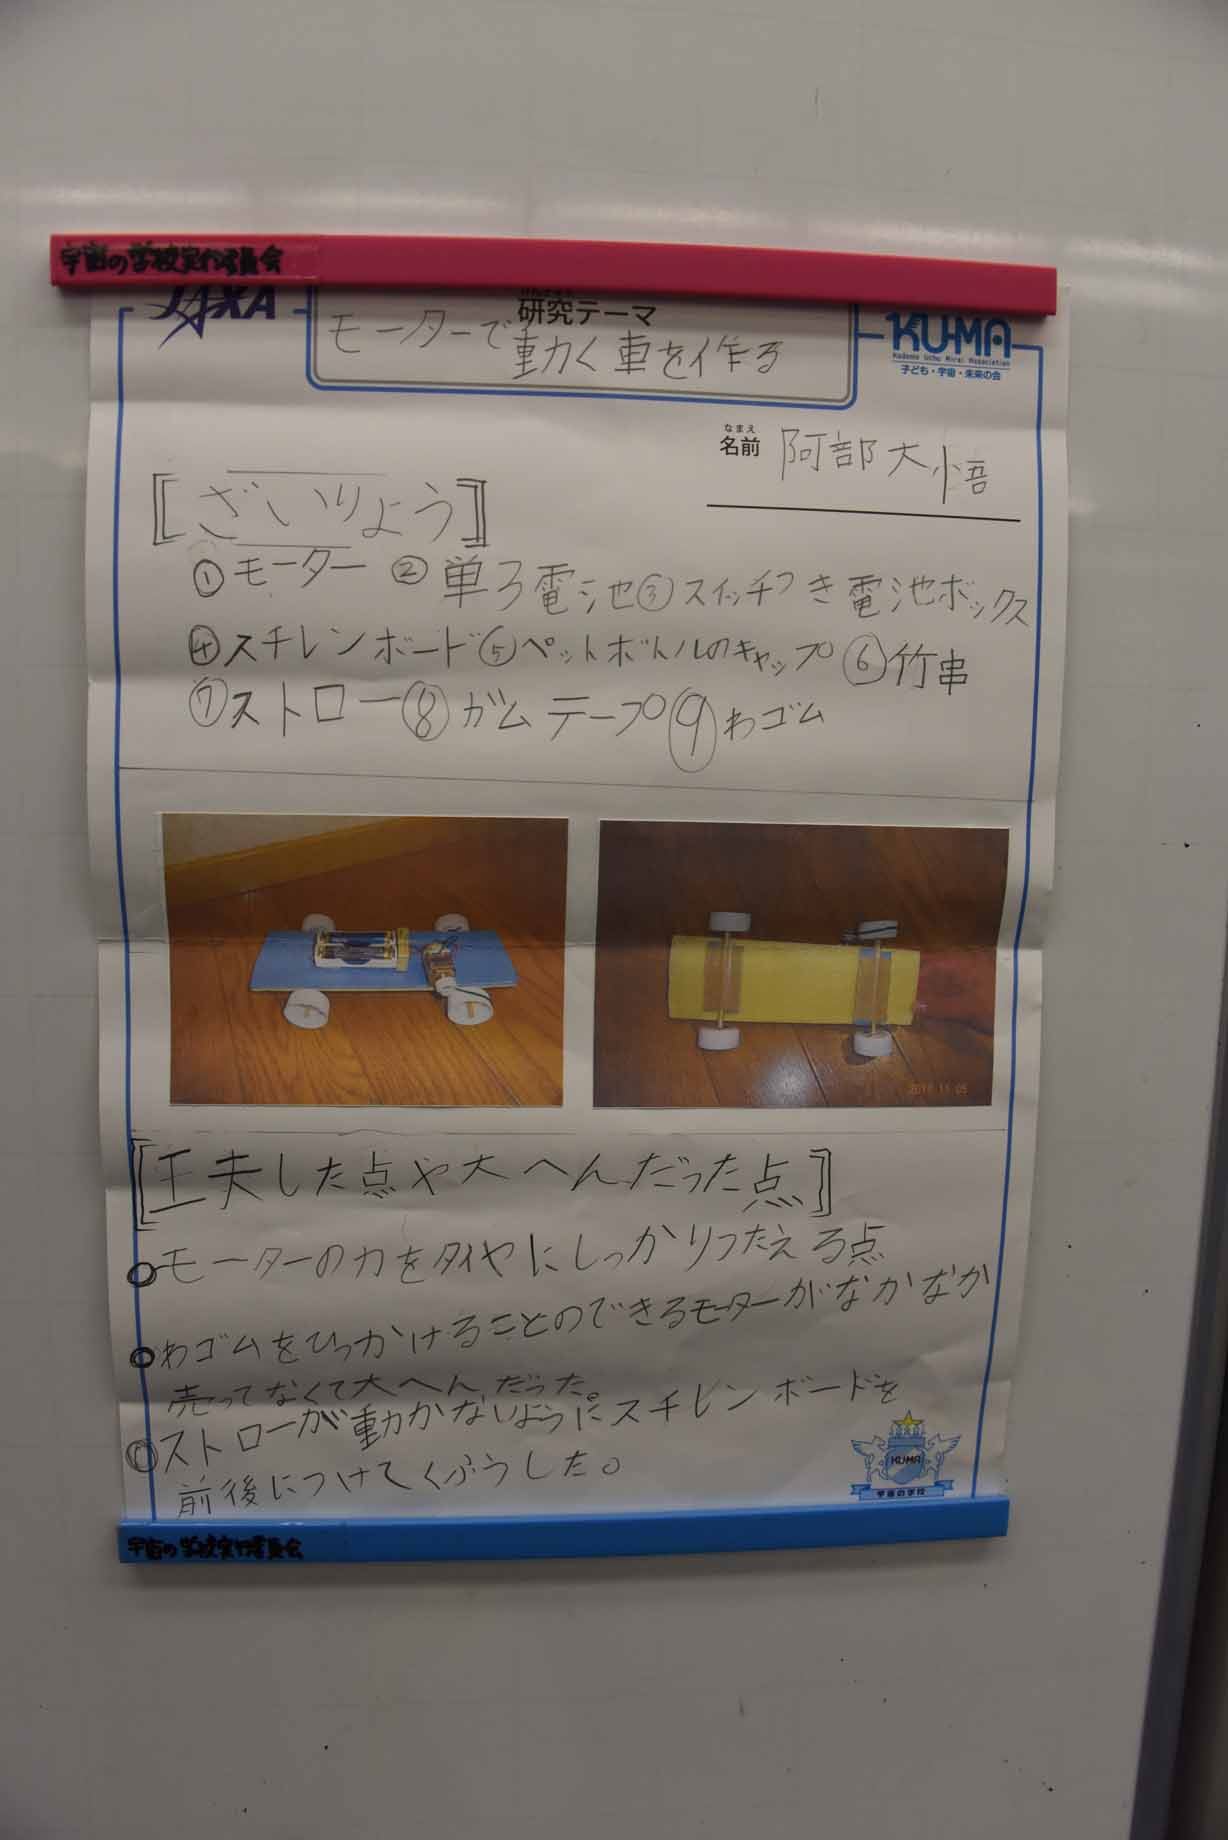 宇宙の学校実行委員会
JAXA
けんきゅう
研究テーマ
モーターで動く車を作る
KU-MA
Kodomo Uchu Mirai Association
子ども・宇宙・未来の会
なまえ
名前 阿部大悟
[ざいりょう]
①モーター ②単3電池③スイッチつき電池ボックス
④スチレンボード⑤ペットボトルのキャップ⑥竹串
⑦ストロー⑧ガムテープ⑨わゴム
11 05
[工夫した点や大へんだった点]
○モーターの力をタイヤにしっかりつたえる点
○わゴムをひっかけることのできるモーターがなかなか
売ってなくて大へんだった。
○ストローが動かないようにスチレンボードを
前後につけてくふうした。
KU-MA
宇宙の学校
宇宙の学校実行委員会